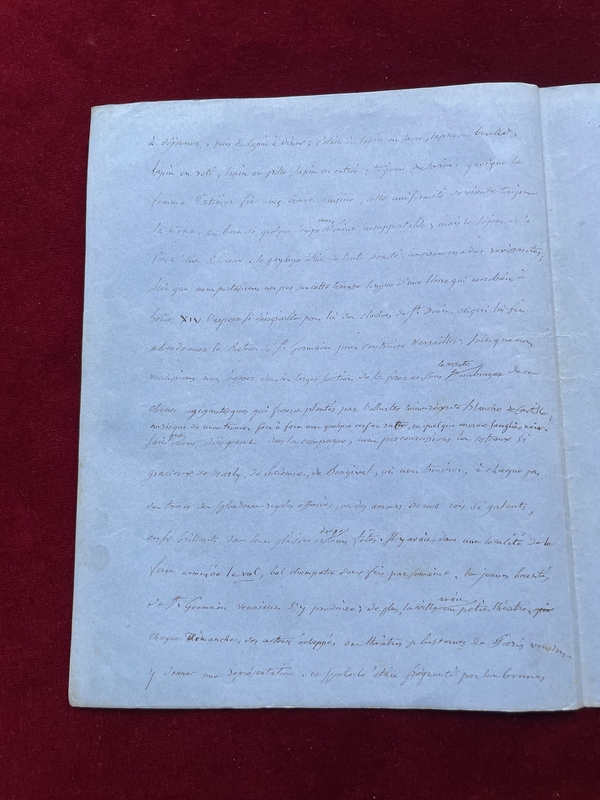 de déjeuner, puis du lapin à dîner; c'était du lapin en
lapin en rôti, lapin en gîte, lapin en entrée; toujours du lapin. Quoique la
femme fit une bonne cuisine, cette uniformité de viande toujours
la même, au bout de quelque temps devint insupportable; mais le séjour de
le paysage était de toute beauté, les promenades ravissantes,
soit que nous portassions nos pas sur cette terrasse longue d'une lieue qui montrait à
Louis XIV l'aspect si désagréable pour lui du clocher de St Denis, ce qui lui fit
abandonner le château de St Germain pour construire Versailles; soit que nous
voulussions nous égarer dans les larges sections de la forêt et sous le vaste ombrage de ces
chênes gigantesques qui furent plantés par l'illustre Blanche de Castille,
au risque de nous trouver face à face avec quelque cerf ou quelque sanglier noir.
soit que nous dirigeant dans la campagne, nous parcourussions les coteaux si
gracieux de Marly, de Luciennes, de Bougival, où nous trouvions, à chaque pas
des traces des splendeurs royales effacées, ou des amours de nos rois si galants,
enfin brillants dans leurs plaisirs et leurs fêtes. Il y avait dans une localité de la
forêt nommée le val, bal champêtre deux fois par semaine. les jeunes beautés
de St Germain venaient s'y produire; de plus, la ville avait un petit théâtre, où
chaque Dimanche, des acteurs échappés aux théâtres de Paris venaient
y donner une représentation. ce spectacle était fréquenté par les bonnes